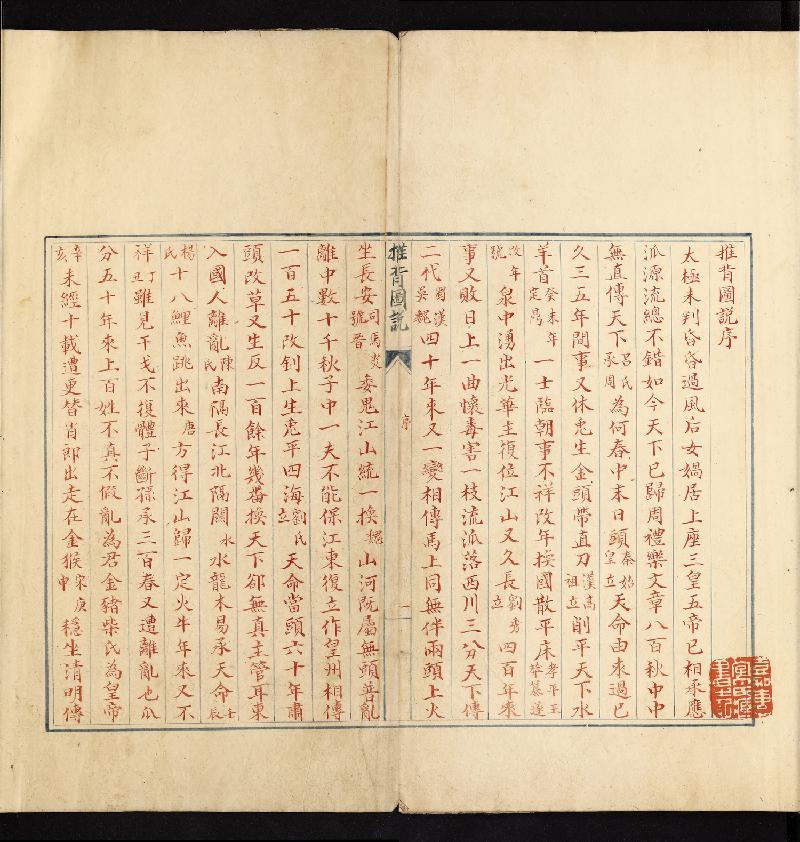 推背圖説序
太極未判昏昏過風后女媧居上座三皇五帝已相承應
派源流總不錯如今天下已歸周禮樂文章八百秋中中
無直傳天下呂氏承周為何春中末日頭秦始皇立天命由來過已
久三五年間事又休兎生金頭帶直刀漢高祖立削平天下水
羊首癸未年定為一士臨朝事不祥改年換國散平床孝平王莽簒逆
改年號泉中湧出光華主復位江山又久長劉秀立四百年來
事又敗日上一曲懷毒害一枝流派落西川三分天下傳
二代蜀漢吳魏四十年來又一變相傳馬上同無伴兩頭上火
推背圖説
序
一
生長安司馬炎號晉委鬼江山統一換魏山河阮屬無頭善亂
離中數十千秋子中一夫不能保江東復立作皇州相傳
一百五十改釗上生兎平四海劉氏立天命當頭六十年肅
頭改草又生反一百餘年幾番換天下郤無真主管耳東
入國人離亂陳氏南隔長江北隔關水水龍木易承天命壬辰
楊氏十八鯉魚跳出來唐方得江山歸一定火牛年來又不
祥丁丑雖見干戈不復體子斷孫承三百春又遭離亂也瓜
分五十年來上百姓不真不假亂為君金豬柴氏為皇帝
辛亥未經十載遭更替肖郎出走在金猴宋庚申穩坐清明傳